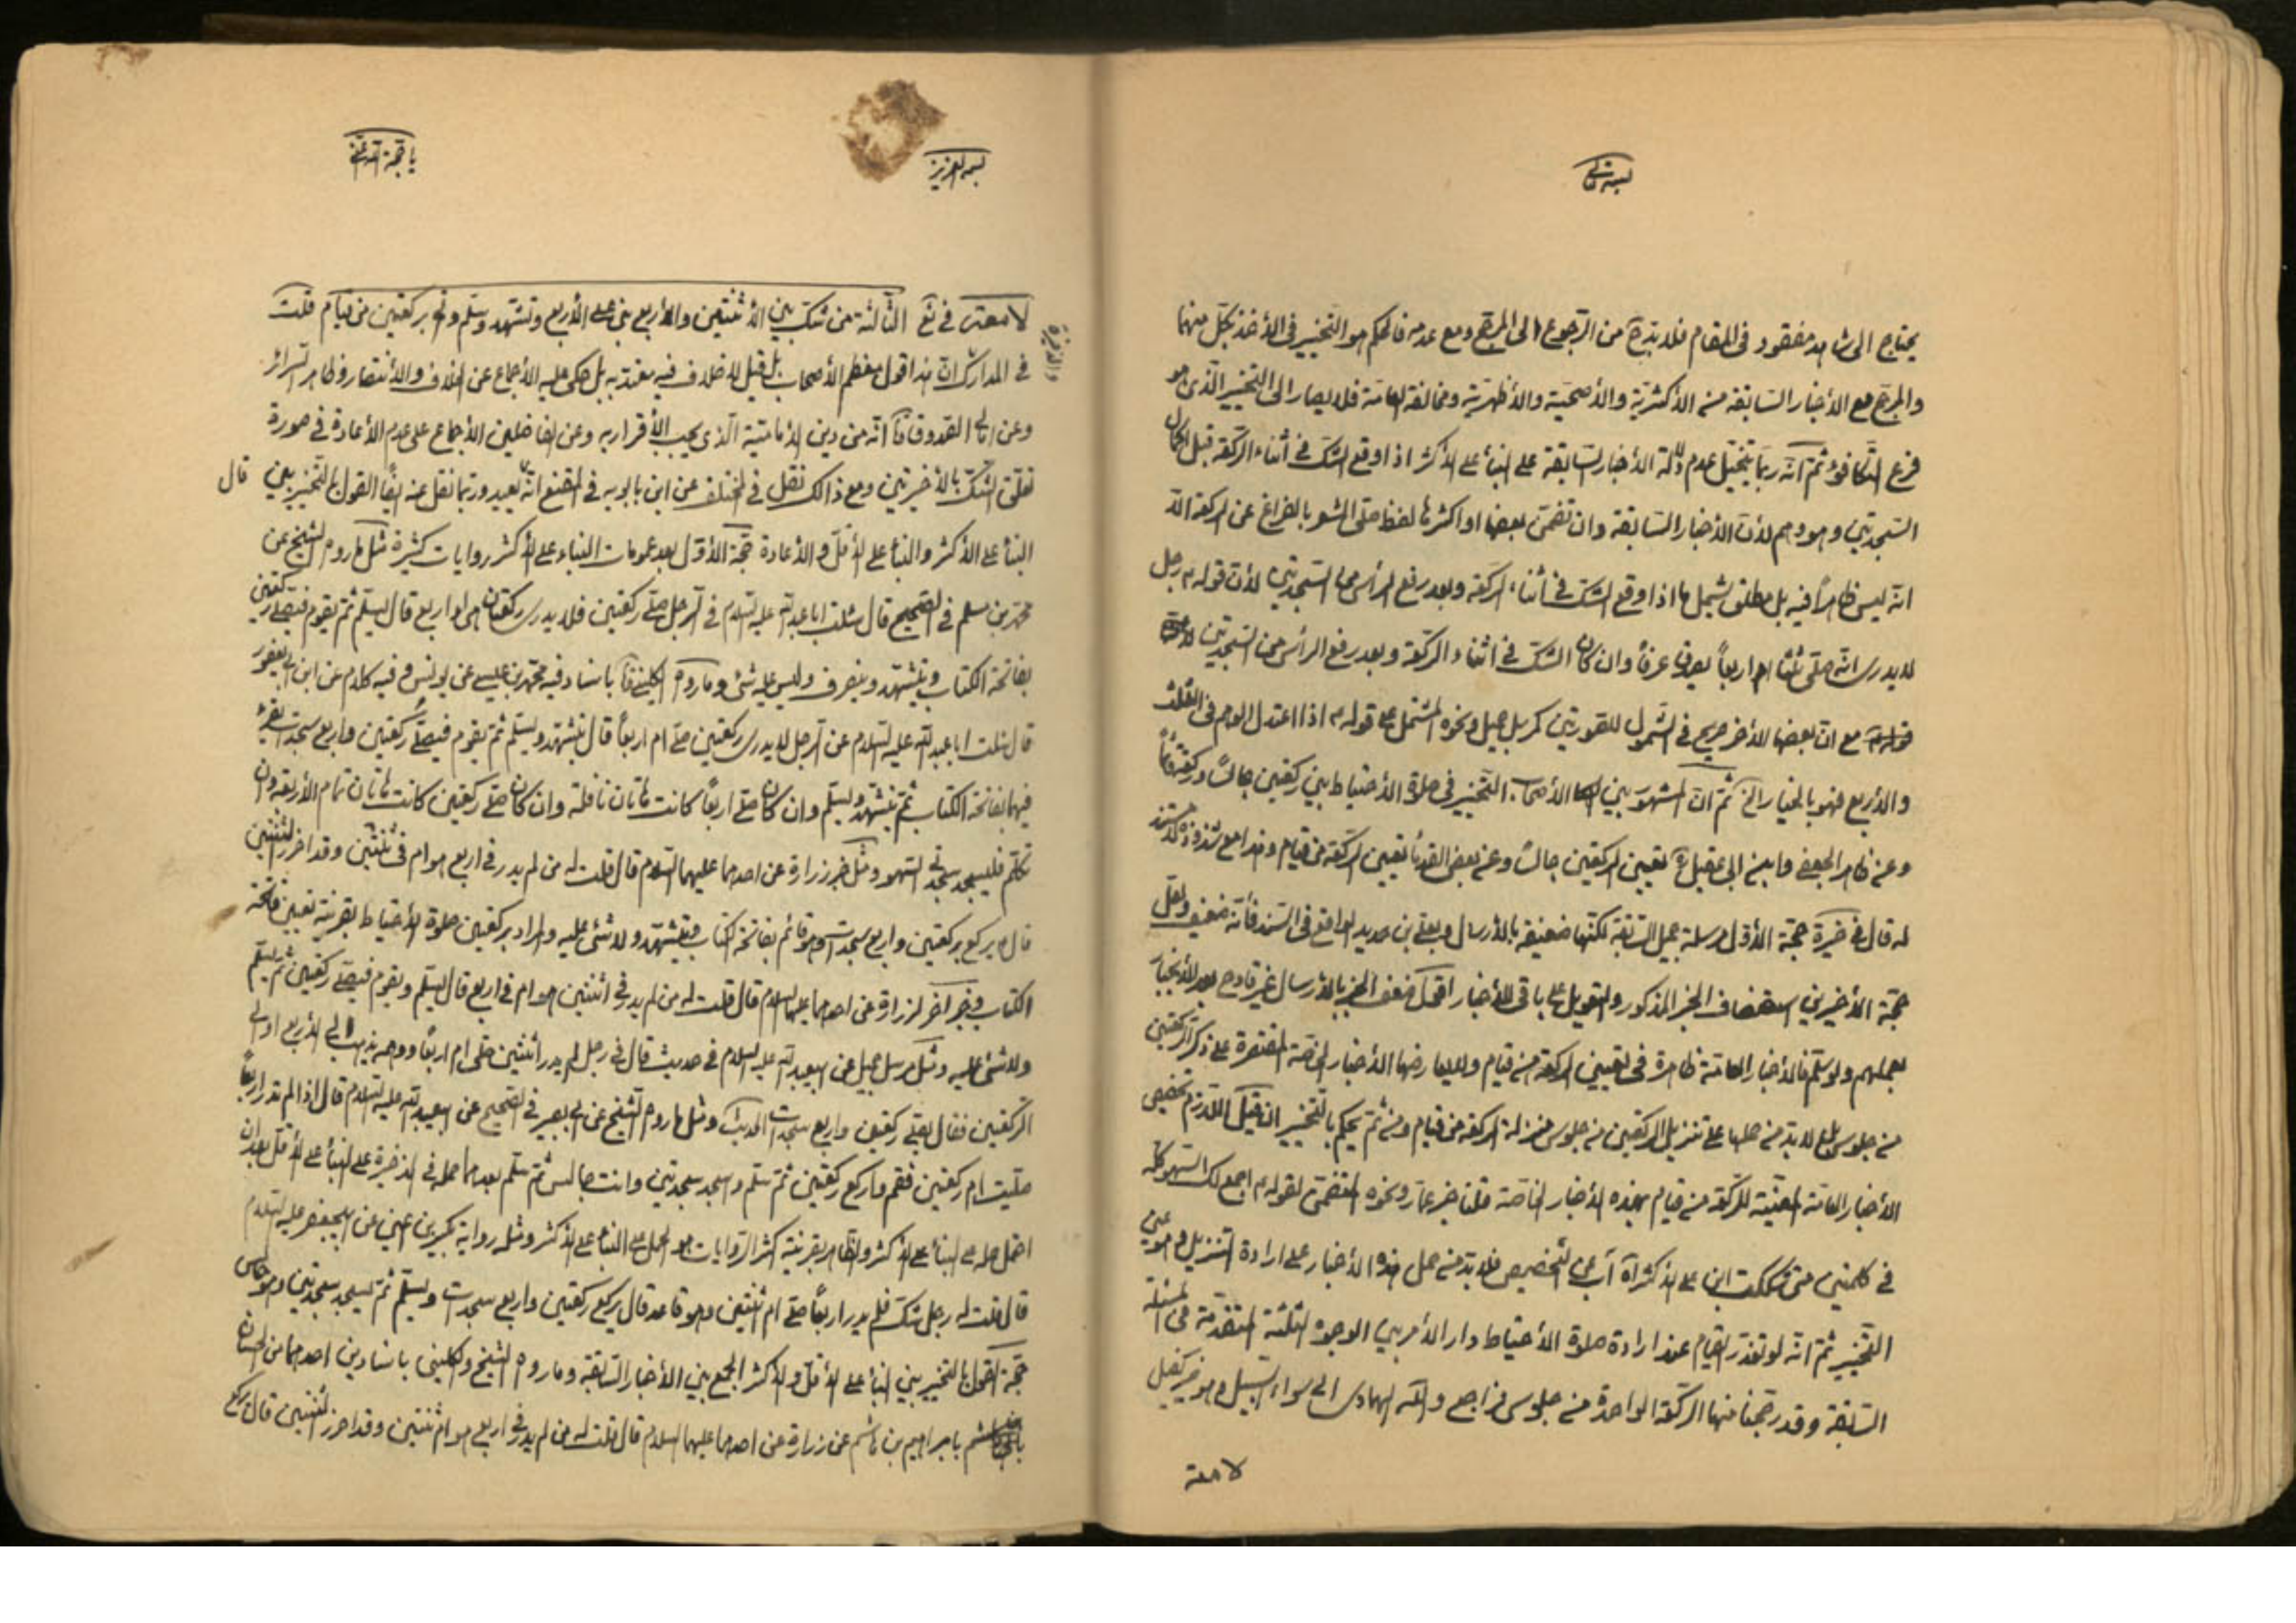 بسمه تعالى
يحتاج الى شاهد مفقود فى المقام فلا بدّ من الرّجوع الى المرجّح ومع عدمه فالحكم هو التخيير فى الأخذ بكلّ منهما
والمرجّح مع الأخبار السّابقة من الأكثريّة والأصحّية والأظهريّة ومخالفة العامّة فلا يصار الى التخيير الّذى هو
فرع التّكافؤ ثمّ انّه ربّما يتخيّل عدم دلالة الأخبار السّابقة على البناء على الأكثر اذا وقع الشّك فى أثناء الرّكعة قبل اكمال
السّجدتين وهو وهم لأنّ الأخبار السّابقة وان تضمّن بعضها او اكثرها لفظ صلّى المشعر بالفراغ عن الركعة الّا
انّه ليس ظاهراً فيه بل مطلق يشمل ما اذا وقع الشّك فى أثناء الرّكعة وبعد رفع الرأس من السّجدتين لأنّ قوله رجل
لا يدرى انّه صلّى ثلثا ام اربعاً يصدق عرفاً وان كان الشّك فى اثناء الرّكعة وبعد رفع الرأس من السّجدتين
مع انّ بعضها الأخر صريح فى الشّمول للصّورتين كمرسل جميل ونحوه المشتمل على قوله اذا اعتدل الوهم فى الثلث
والأربع فهو بالخيار الخ ثمّ انّ المشهور بين الأصحاب التّخيير فى صلاة الأحتياط بين ركعتين جالساً وركعة قائماً
وعن ظاهر الجعفى وابن ابى عقيل تعيين الركعتين جالساً وعن بعض القدماء تعيين الرّكعة من قيام وهذا مع شذوذه لا مستند
له قال فى ذخيرة حجّة الأوّل مرسلة جميل السّابقة لكنّها ضعيفة بالأرسال وبعلى بن حديد الواقع فى السّند فأنّه ضعيف ولعلّ
حجّة الأخيرين استضعاف الخبر المذكور والتعويل على باقى الأخبار اقول ضعف الخبر بالأرسال غير قادح بعد الأنجبار
بعملهم ولو سلّم فالأخبار العامّة ظاهرة فى تعيين الركعة من قيام ولا يعارضها الأخبار الخاصّة المقتصرة على ذكر الركعتين
من جلوس بل لا بدّ من حملها على تنزيل الركعتين من جلوس منزلة الركعة من قيام ومن ثمّ يحكم بالتّخيير ان قيل اللّازم تخصيص
الأخبار العامّة المعيّنة للرّكعة من قيام بهذه الأخبار الخاصّة قلنا خبر عمّار ونحوه المتضمّن لقوله اجمع لك السّهو كلّه
فى كلمتين متى شككت فابن على الأكثر آب عن التخصيص فلا بدّ من حمل هذه الأخبار على ارادة التّنزيل وهو عين
التّخيير ثمّ انّه لو تعذّر القيام عند ارادة صلوة الأحتياط دار الأمر بين الوجوه الثلثة المتقدّمة فى المسئلة
السّابقة وقد رجّحنا منها الركعة الواحدة من جلوس فراجع واللّه الهادى الى سواء السّبيل وهو خير كفيل
لامعة
بسمه العزيز
يا حجة الله
لامعة فى الثّالثة من شكّ بين الأثنتين والأربع بنى على الأربع وتشهّد وسلّم واتى بركعتين من قيام قلت
والذخيرة
فى المدارك انّ هذا قول معظم الأصحاب بل قيل لا خلاف فيه يعتدّ به بل حكى عليه الأجماع عن الخلاف والأنتصار وظاهر السّرائر
وعن امالى الصّدوق انّه من دين الأماميّة الّذى يجب الأقرار به وعن الفاضلين الأجماع على عدم الأعادة فى صورة
تعلّق الشّك بالأخيرتين ومع ذالك نقل فى المختلف عن ابن بابويه فى المقنع انّه يعيد وربّما نقل عنه ايضاً القول بالتّخيير بين
قال
البناء على الأكثر والبناء على الأقلّ والأعادة حجّة الأوّل بعد عمومات البناء على الأكثر روايات كثيرة مثل ما رواه الشّيخ عن
محمّد بن مسلم فى الصّحيح قال سئلت ابا عبد اللّه عليه السّلام فى الرّجل صلّى ركعتين فلا يدرى ركعتان هى او اربع قال يسلّم ثمّ يقوم فيصلّى ركعتين
بفاتحة الكتاب ويتشهّد وينصرف وليس عليه شئ وما رواه الكلينى باسناد فيه محمّد بن عيسى عن يونس وفيه كلام عن ابن ابى يعفور
قال سئلت ابا عبد اللّه عليه السّلام عن الرّجل لا يدرى ركعتين صلّى ام اربعاً قال يتشهّد ويسلّم ثمّ يقوم فيصلّى ركعتين واربع سجدات يقرء
فيهما بفاتحة الكتاب ثمّ يتشهّد ويسلّم وان كان صلّى اربعاً كانت هاتان نافلة وان كان صلّى ركعتين كانت هاتان تمام الأربعة وان
تكلّم فليسجد سجدتى السّهو ومثل خبر زرارة عن احدهما عليهما السّلام قال قلت له من لم يدر فى اربع هو ام فى ثنتين وقد احرز الثنتين
قال يركع بركعتين واربع سجدات وهو قائم بفاتحة الكتاب ويتشهّد ولا شئ عليه والمراد بركعتين صلوة الأحتياط بقرينة تعيين فاتحة
الكتاب وخبر آخر لزرارة عن احدهما عليهما السّلام قال قلت له من لم يدر فى اثنتين هو ام فى اربع قال يسلّم ويقوم فيصلّى ركعتين ثمّ يسلّم
ولا شئ عليه ومثل مرسل جميل عن ابيعبد اللّه عليه السّلام فى حديث قال فى رجل لم يدر اثنتين صلّى ام اربعاً ووهمه يذهب الى الأربع او الى
الركعتين فقال يصلّى ركعتين واربع سجدات الحديث ومثل ما رواه الشّيخ عن ابى بصير فى الصّحيح عن ابيعبد اللّه عليه السّلام قال اذا لم تدر اربعاً
صلّيت ام ركعتين فقم واركع ركعتين ثمّ سلّم واسجد سجدتين وانت جالس ثمّ سلّم بعدهما حمله فى الذخيرة على البناء على الأقلّ بعد ان
احتمل حمله على البناء على الأكثر والظّاهر بقرينة اكثر الرّوايات هو الحمل على البناء على الأكثر ومثله رواية بكير بن اعين عن ابيجعفر عليه السّلام
قال قلت له رجل شكّ فلم يدر اربعاً صلّى ام ثنتين وهو قاعد قال يركع ركعتين واربع سجدات ويسلّم ثمّ يسجد سجدتين وهو جالس
حجّة القول بالتّخيير بين البناء على الأقلّ والأكثر الجمع بين الأخبار السّابقة وما رواه الشّيخ والكلينى باسنادين احدهما من الحسان
بابراهيم بن هاشم عن زرارة عن احدهما عليهما السلام قال قلت له من لم يدر فى اربع هو ام ثنتين وقد احرز الثنتين قال يركع